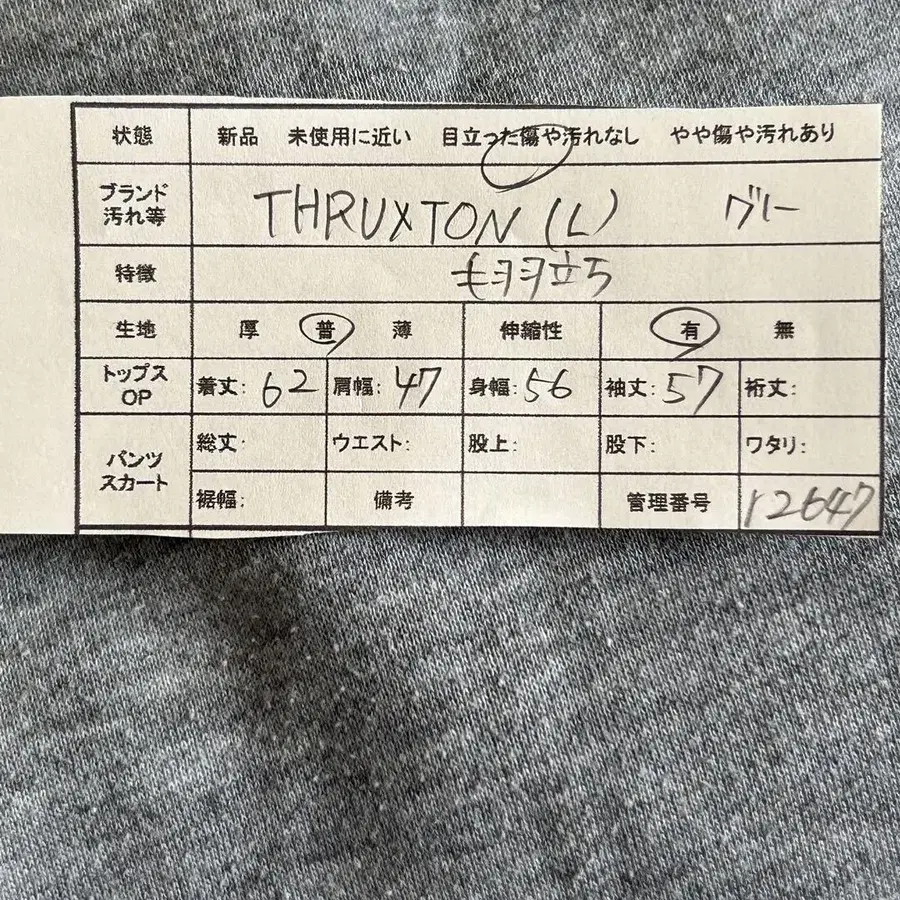 状態 新品 未使用に近い 目立った傷や汚れなし やや傷や汚れあり
ブランド
汚れ等 THRUXTON (L) グレー
特徴 毛羽立ち
生地 厚 普 薄 伸縮性 有 無
トップス
OP 着丈: 62 肩幅: 47 身幅: 56 袖丈: 57 裄丈:
パンツ
スカート 総丈: ウエスト: 股上: 股下: ワタリ:
裾幅: 備考 管理番号 12647